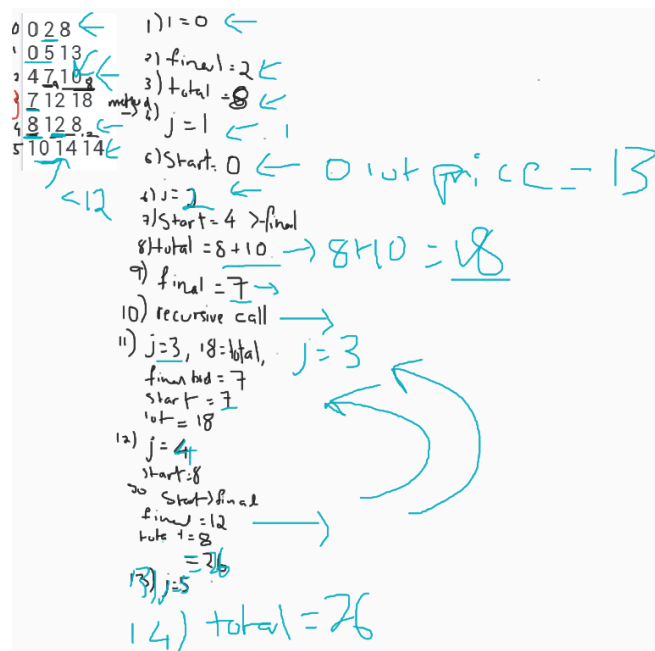 0 0 2 8
1 0 5 13
2 4 7 10 8
3 7 12 18
4 8 12 8
5 10 14 14
<12
1) i=0
2) final=2
3) total=8
j=1 1
6) Start=0
0 lot price=13
6) j=2
7) Start=4 >final
8) total=8+10 → 8+10=18
9) final=7
10) recursive call
11) j=3, 18=total, j=3
final bid=7
start=7
lot=18
12) j=4
start=8
so start>final
final=12
total+=8
=26
13) j=5
14) total=26